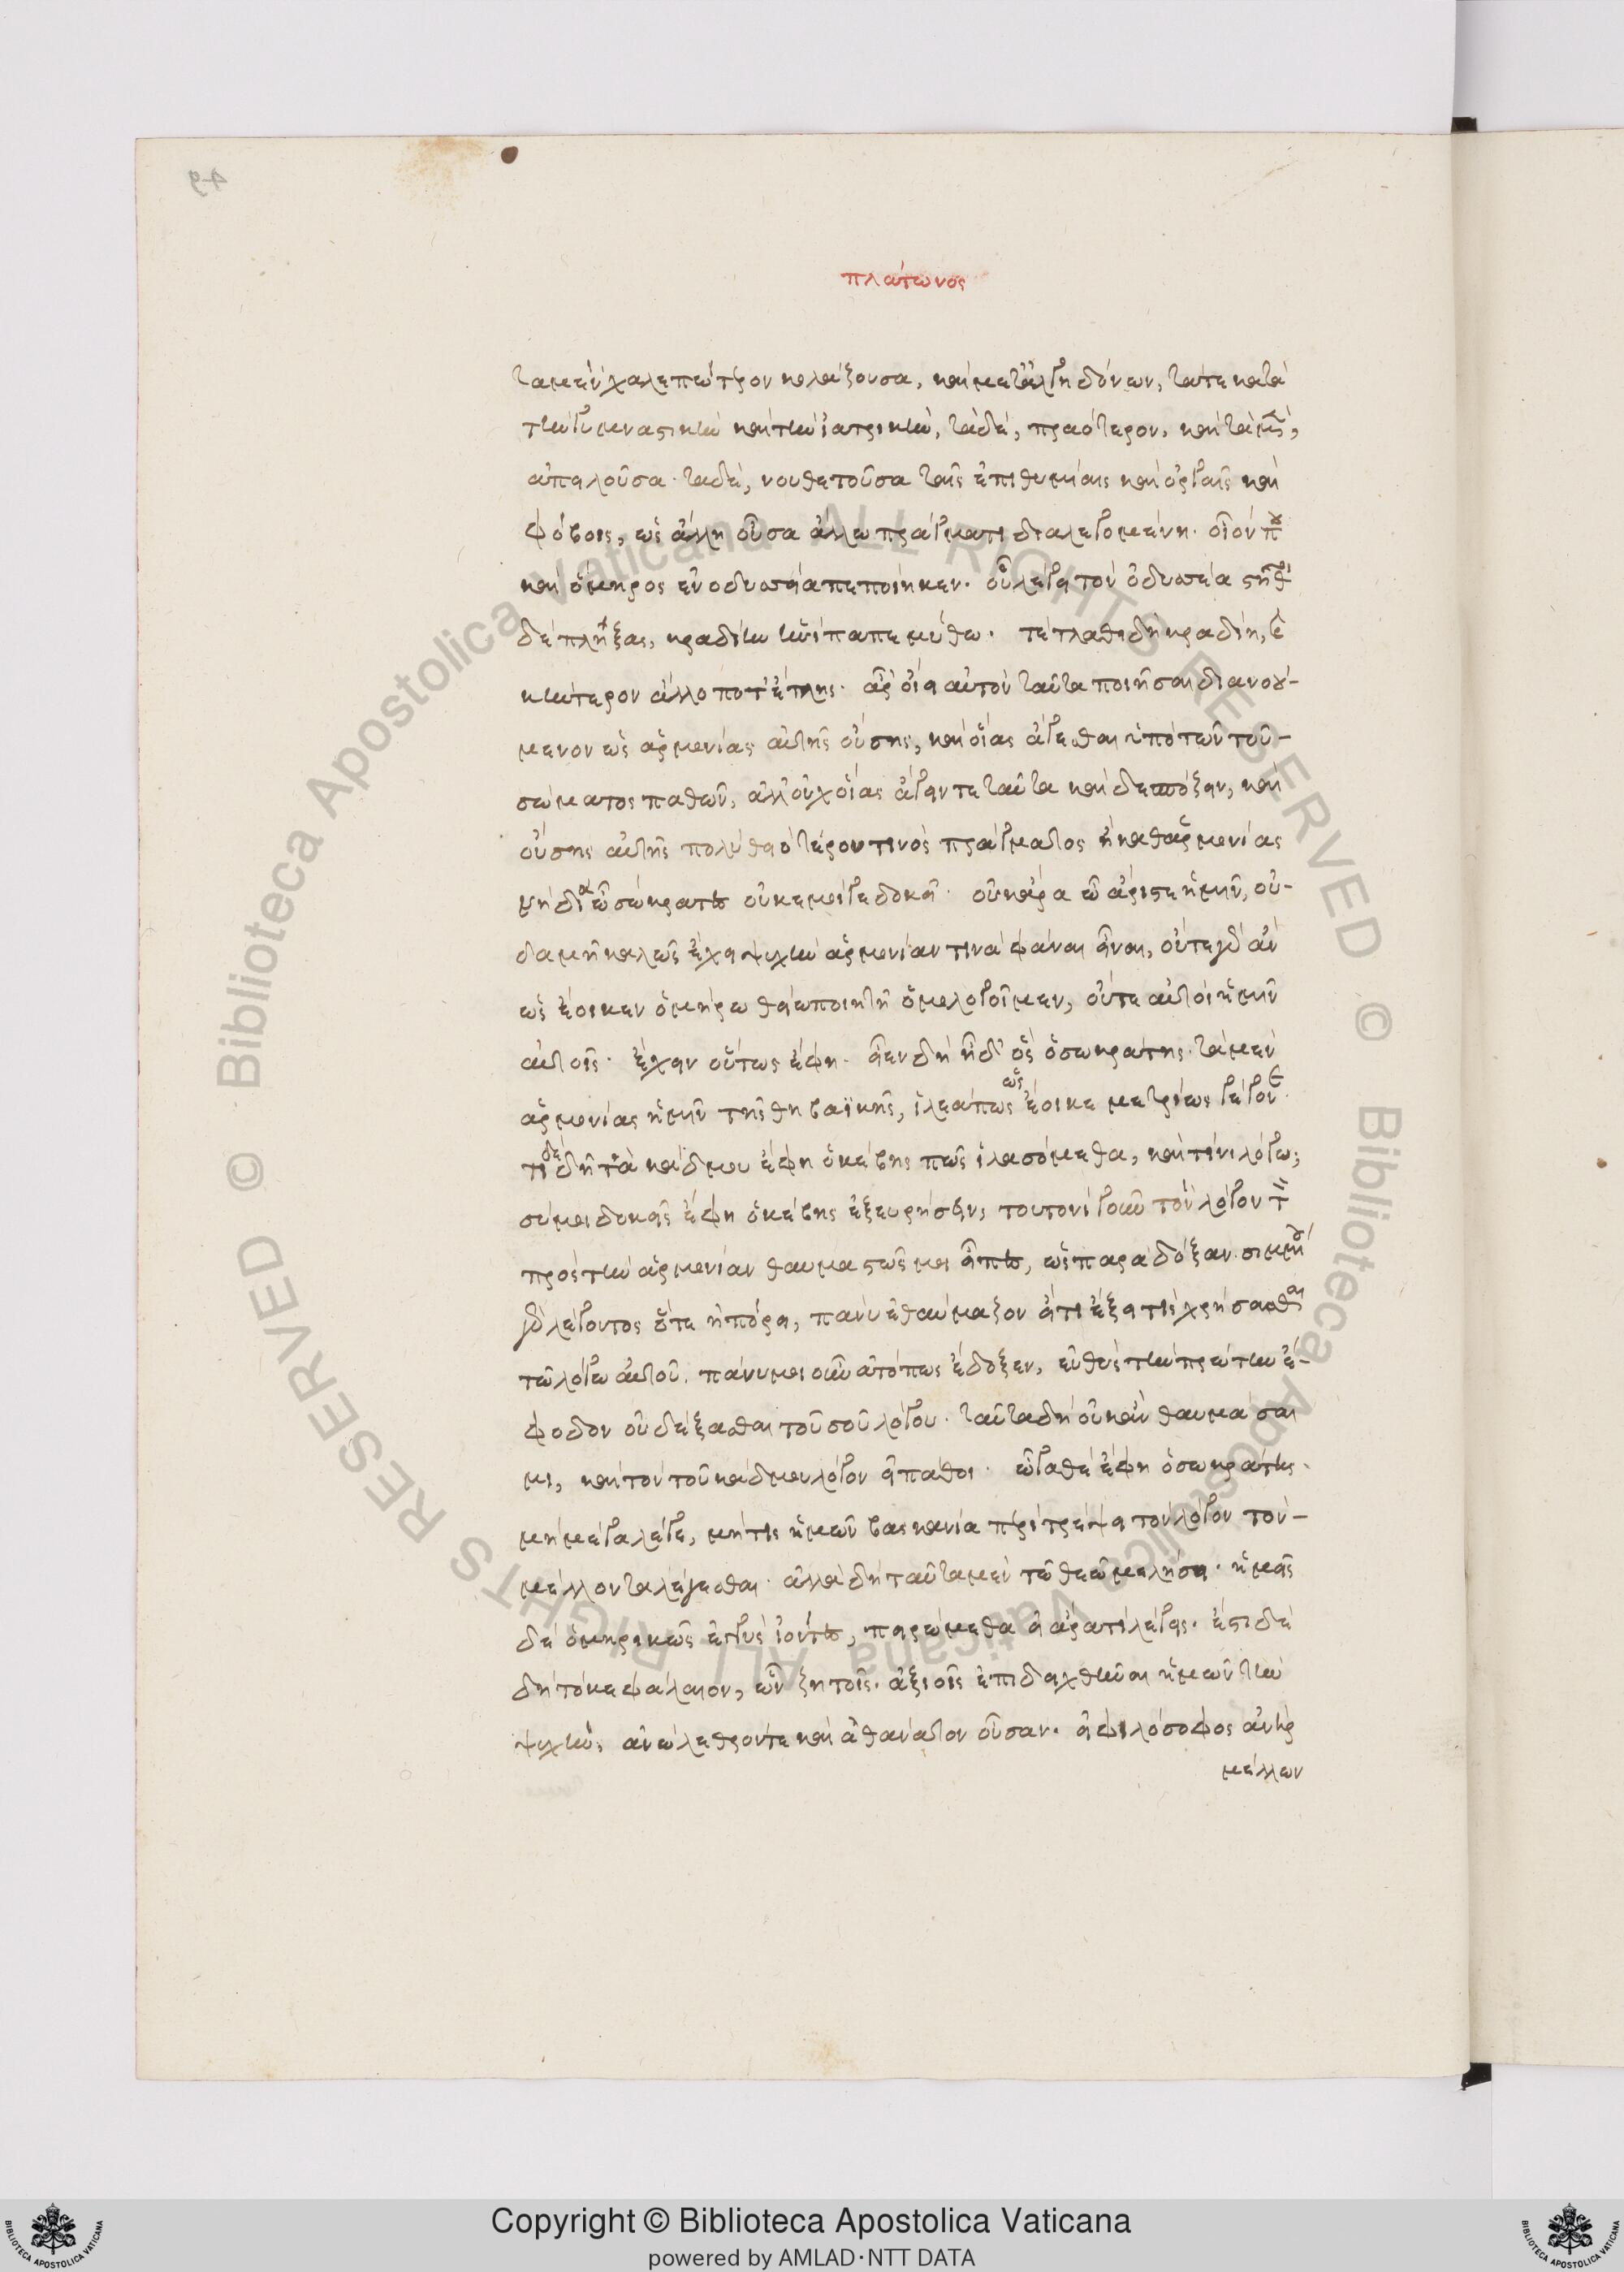 49
πλάτωνος
τὰ μὲν χαλεπώτερον κολάζουσα, καὶ μετ' ἀλγηδόνων, τά τε κατὰ
τὴν γυμναστικὴν καὶ τὴν ἰατρικὴν, τὰ δὲ, πραότερον, καὶ τὰ μὲν,
ἀπειλοῦσα· τὰ δὲ, νουθετοῦσα ταῖς ἐπιθυμίαις καὶ ὀργαῖς καὶ
φόβοις, ὡς ἄλλη οὖσα ἄλλω πράγματι διαλεγομένη. οἷόν που
καὶ ὅμηρος ἐν ὀδυσσείᾳ πεποίηκεν. οὗ λέγει τὸν ὀδυσσέα στῆθος
δὲ πλήξας, κραδίην ἠνίπαπε μύθω. τέτλαθι δὴ κραδίη, καὶ
κύντερον ἄλλο ποτ' ἔτλης. ἆρ' οἴει αὐτὸν ταῦτα ποιῆσαι διανοού-
μενον ὡς ἁρμονίας αὐτῆς οὔσης, καὶ οἵας ἄγεσθαι ὑπὸ τῶν τοῦ-
σώματος παθῶν, ἀλλ' οὐχ οἵας ἄγειν τε ταῦτα καὶ δεσπόζειν, καὶ
οὔσης αὐτῆς πολὺ θειοτέρου τινὸς πράγματος ἢ καθ' ἁρμονίας
νὴ δία ὦ σώκρατες οὐκ ἐμοί γε δοκεῖ. οὐκ ἄρα ὦ ἄριστε ἡμῖν, οὐ-
δαμῆ καλῶς ἔχει ψυχὴν ἁρμονίαν τινὰ φάναι εἶναι, οὔτε γὰρ ἂν
ὡς ἔοικεν ὁμήρω θείω ποιητῆ ὁμολογοῖμεν, οὔτε αὐτοὶ ἡμῖν
αὐτοῖς. ἔχειν οὕτως ἔφη. εἶεν δὴ ἦ δ' ὃς ὁ σωκράτης. τὰ μὲν
ἁρμονίας ἡμῖν τῆς θηβαϊκῆς, ἵλεά πως ὡς ἔοικε μετρίως γέγονε.
τί δὲ δὴ τὰ κάδμου ἔφη ὁ κέβης πῶς ἱλασόμεθα, καὶ τίνι λόγω;
σύ μοι δοκεῖς ἔφη ὁ κέβης ἐξευρήσειν, τουτονὶ γοῦν τὸν λόγον τὸν
πρὸς τὴν ἁρμονίαν θαυμαστῶς μοι εἶπες, ὡς παρὰ δόξαν. σιμμίου
γὰρ λέγοντος ὅτε ἠπόρει, πάνυ ἐθαύμαζον εἴ τι ἕξει τις χρήσασθαι
τῶ λόγω αὐτοῦ. πάνυ μοι οὖν ἀτόπως ἔδοξεν, εὐθὺς τὴν πρώτην ἔ-
φοδον οὐ δέξασθαι τοῦ σοῦ λόγου. ταῦτα δὴ οὐκ ἂν θαυμάσαι
μι, καὶ τὸν τοῦ κάδμου λόγον εἰ πάθοι. ὦ γαθὲ ἔφη ὁ σωκράτης.
μὴ μέγα λέγε, μή τις ἡμῶν βασκανία περιτρέψει τὸν λόγον τὸν-
μέλλοντα λέγεσθαι. ἀλλὰ δὴ ταῦτα μὲν τῶ θεῶ μελήσει. ἡμεῖς
δὲ ὁμηρικῶς ἐγγὺς ἰόντες, πειρώμεθα εἰ ἄρα τὶ λέγεις. ἔστι δὲ
δὴ τὸ κεφάλαιον, ὧν ζητοῖς. ἀξιοῖς ἐπιδειχθῆναι ἡμῶν τὴν
ψυχὴν, ἀνώλεθρόν τε καὶ ἀθάνατον οὖσαν. εἰ φιλόσοφος ἀνὴρ
μέλλων
Copyright © Biblioteca Apostolica Vaticana
powered by AMLAD·NTT DATA
© Biblioteca Apostolica Vaticana ALL RIGHTS RESERVED © Biblioteca Apostolica Vaticana ALL RIGHTS RESERVED
BIBLIOTECA APOSTOLICA VATICANA
BIBLIOTECA APOSTOLICA VATICANA